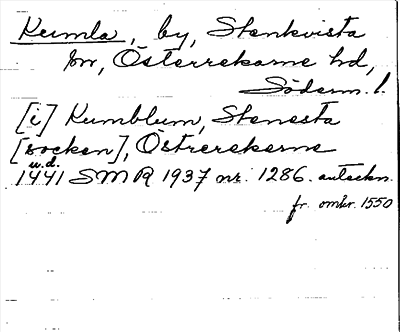 Kumla, by, Stenkvista
sn, Österrekarne hd,
Söderm. l.
[i] Kumblum, Stenesta
[socken], Östrerekarne
u.d.
1441 SMR 1937 nr. 1286. anteckn.
fr. omkr. 1550